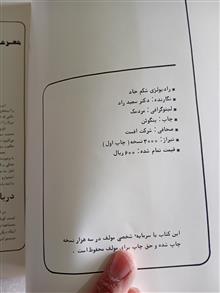 رادیولژی شکم حاد
نگارنده : دکتر سعید راد
لیتوگرافی : مردمک
چاپ : پنگوئن
صحافی : شرکت افست
تیراژ : ۳۰۰۰ نسخه ( چاپ اول )
قیمت تمام شده : ۶۰۰ ریال
این کتاب با سرمایه شخصی مولف در سه هزار نسخه
چاپ شده و حق چاپ برای مولف محفوظ است .